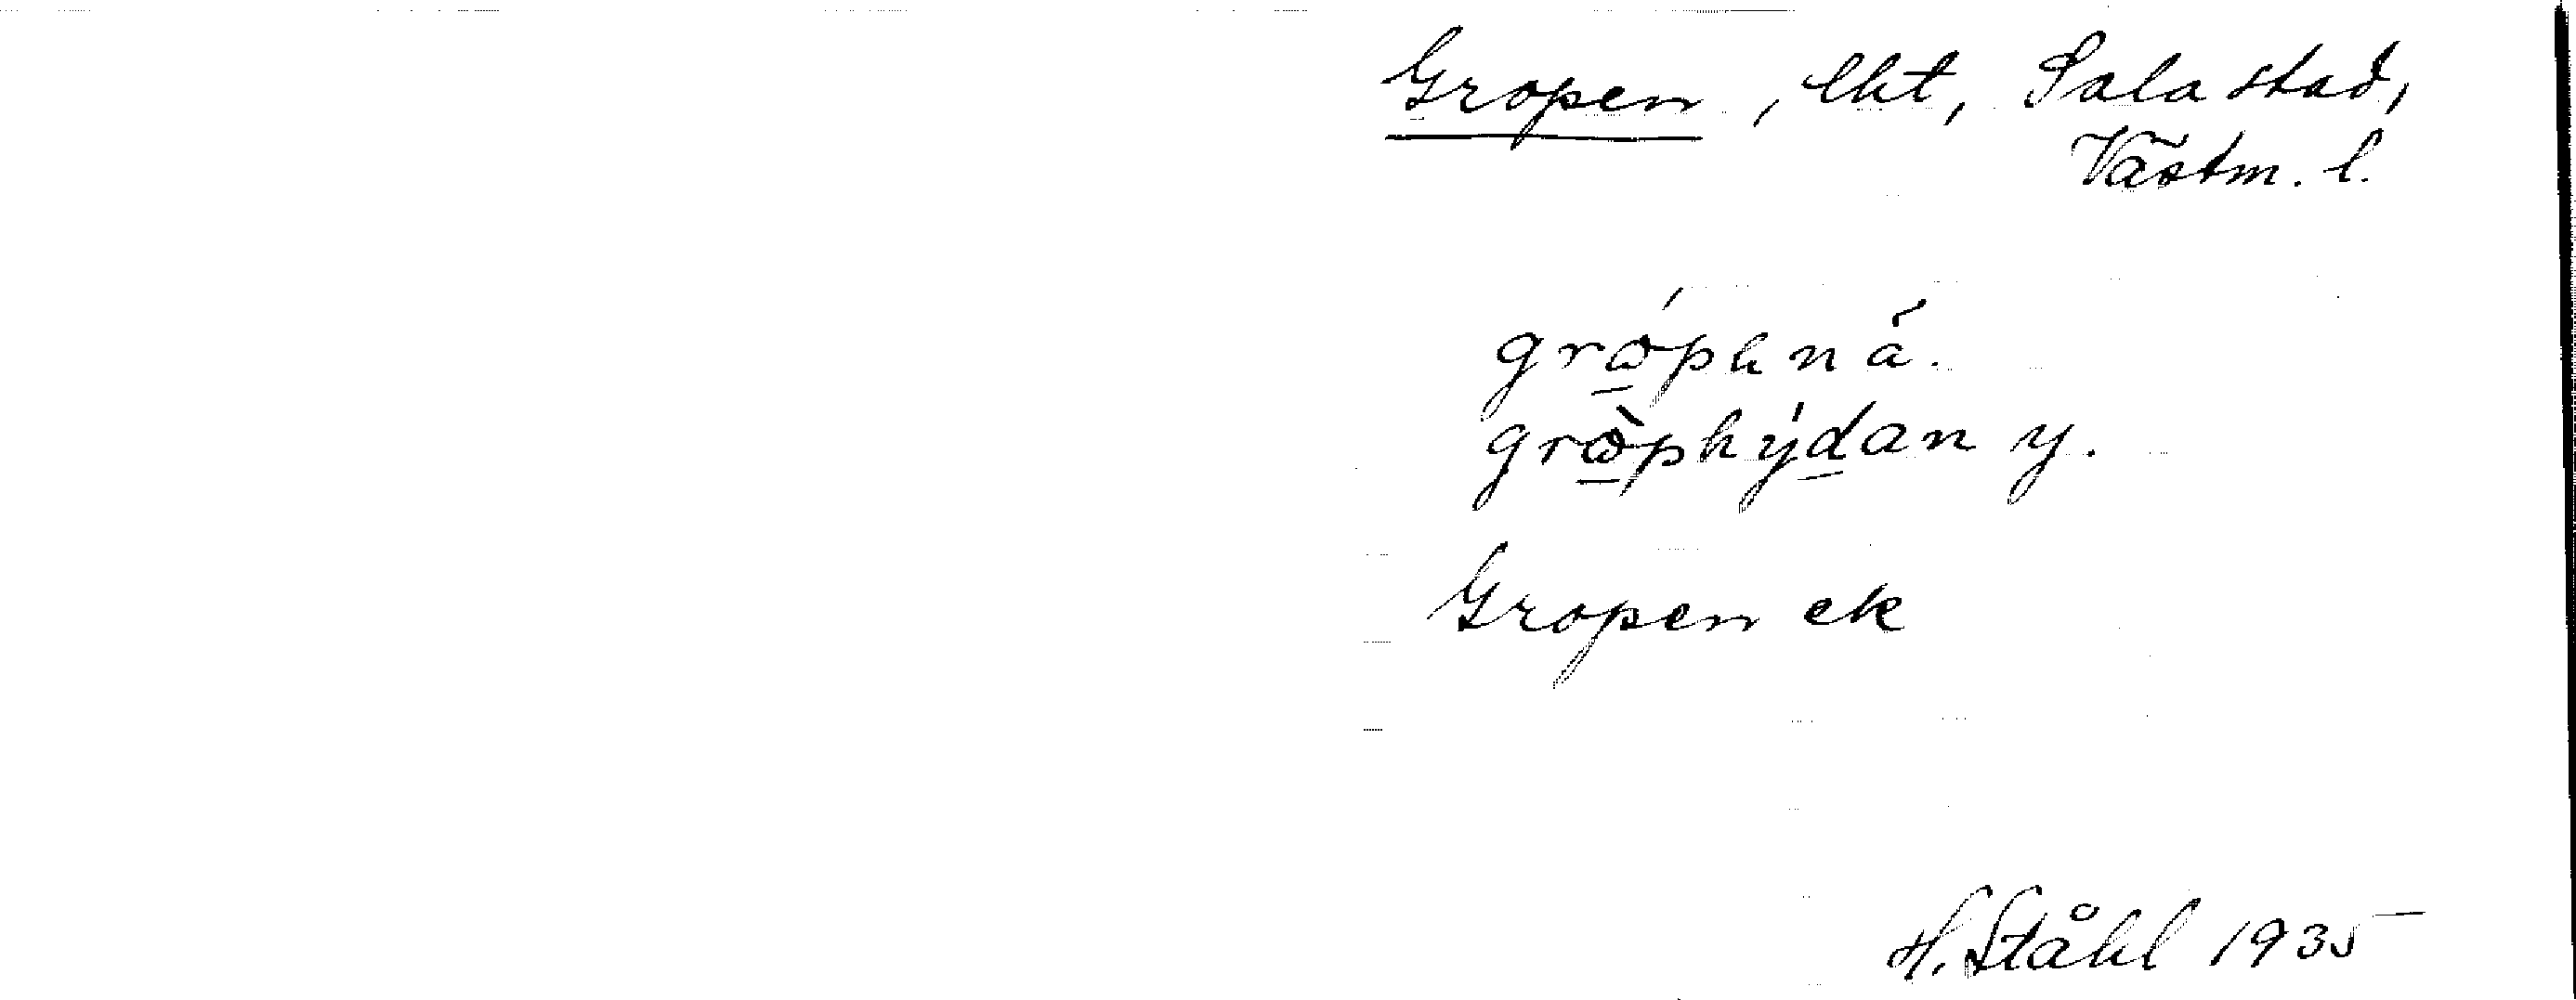 Gropen, lht, Sala stad,
Västm. l.
grópen á.
gròphýdan y.
Gropen ek
H. Ståhl 1935